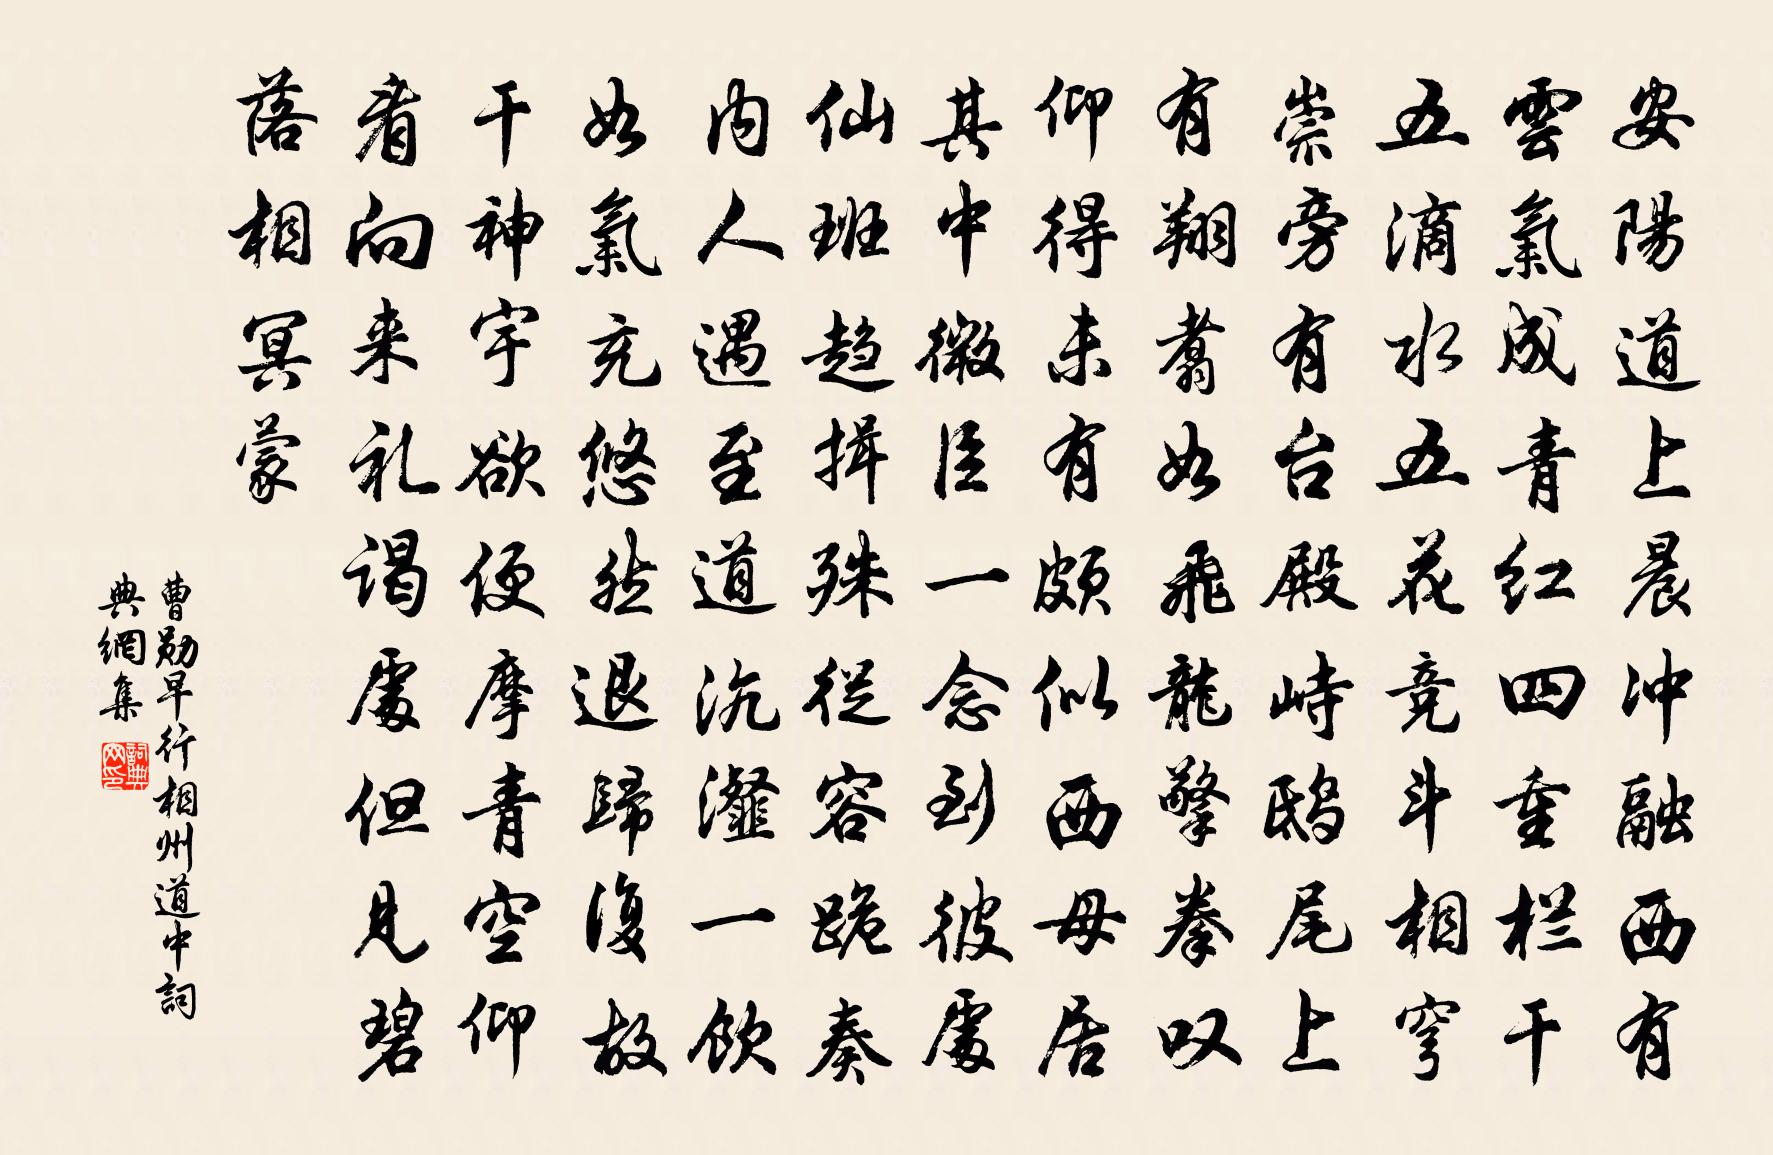 安陽道上晨沖融西有
雲氣成青红四重栏干
五滴水五花竞斗相穹
崇旁有台殿峙鴟尾上
有翔翥如飛龍擎拳叹
仰得未有頗似西母居
其中微臣一念到彼處
仙班趋揖殊從容跪奏
内人遇至道沆瀣一飲
如氣充悠然退歸復故
干神宇欲便摩青空仰
看向来礼谒處但見碧
落相冥蒙
曹勛早行相州道中詞
典網集
詞典网印